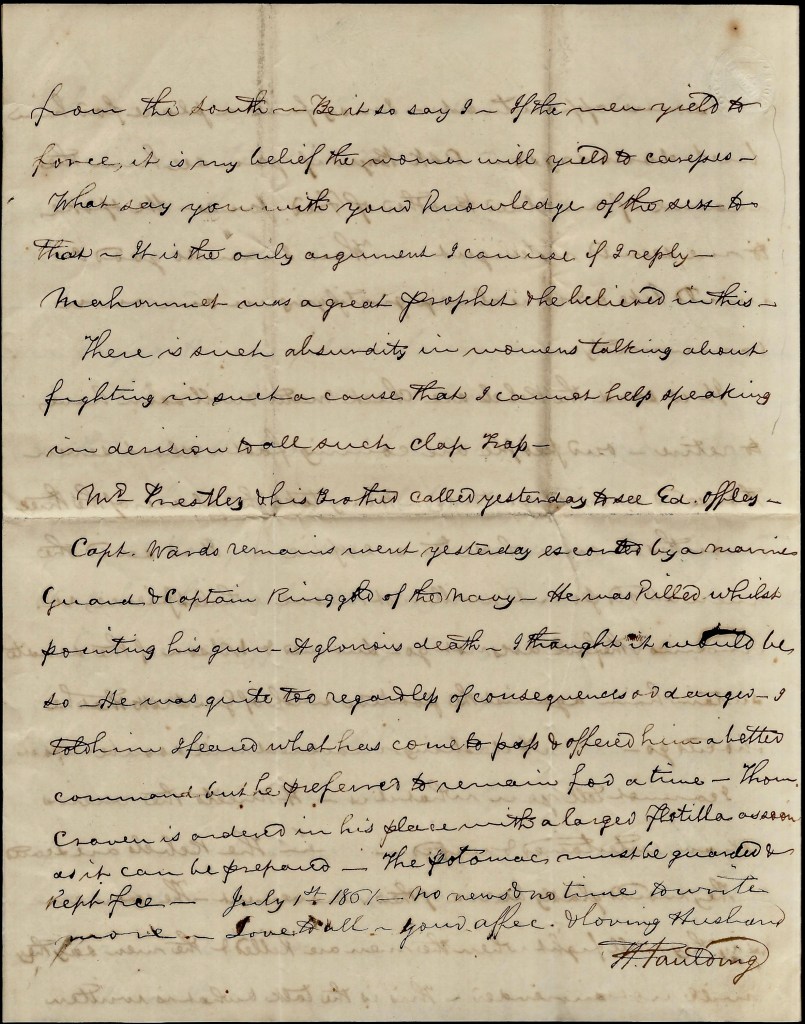 from the South – Be it so say I – If the men yield to
force, it is my belief the women will yield to caresses –
What say you with your Knowledge of the sex to
that – It is the only argument I can use if I reply –
Mahommet was a great prophet & he believed in this –
There is such absurdity in womens talking about
fighting in such a cause that I cannot help speaking
in derision to all such clap trap –
Mr. Priestley & his Brother called yesterday to see Ed. Offley –
Capt. Wards remains went yesterday escorted by a marine
Guard & Captain Ringgold of the Navy – He was Killed whilst
pointing his gun – A glorious death – I thought it would be
so – He was quite too regardless of consequences and danger – I
told him I feared what has come to pass & offered him a better
command but he preferred to remain for a time – Thom.
Craven is ordered in his place with a larger Flotilla as soon
as it can be prepared – The potomac must be guarded &
Kept free – July 1st. 1861 – no news & no time to write
more – Love to all – your affec. & loving Husband
H. Paulding